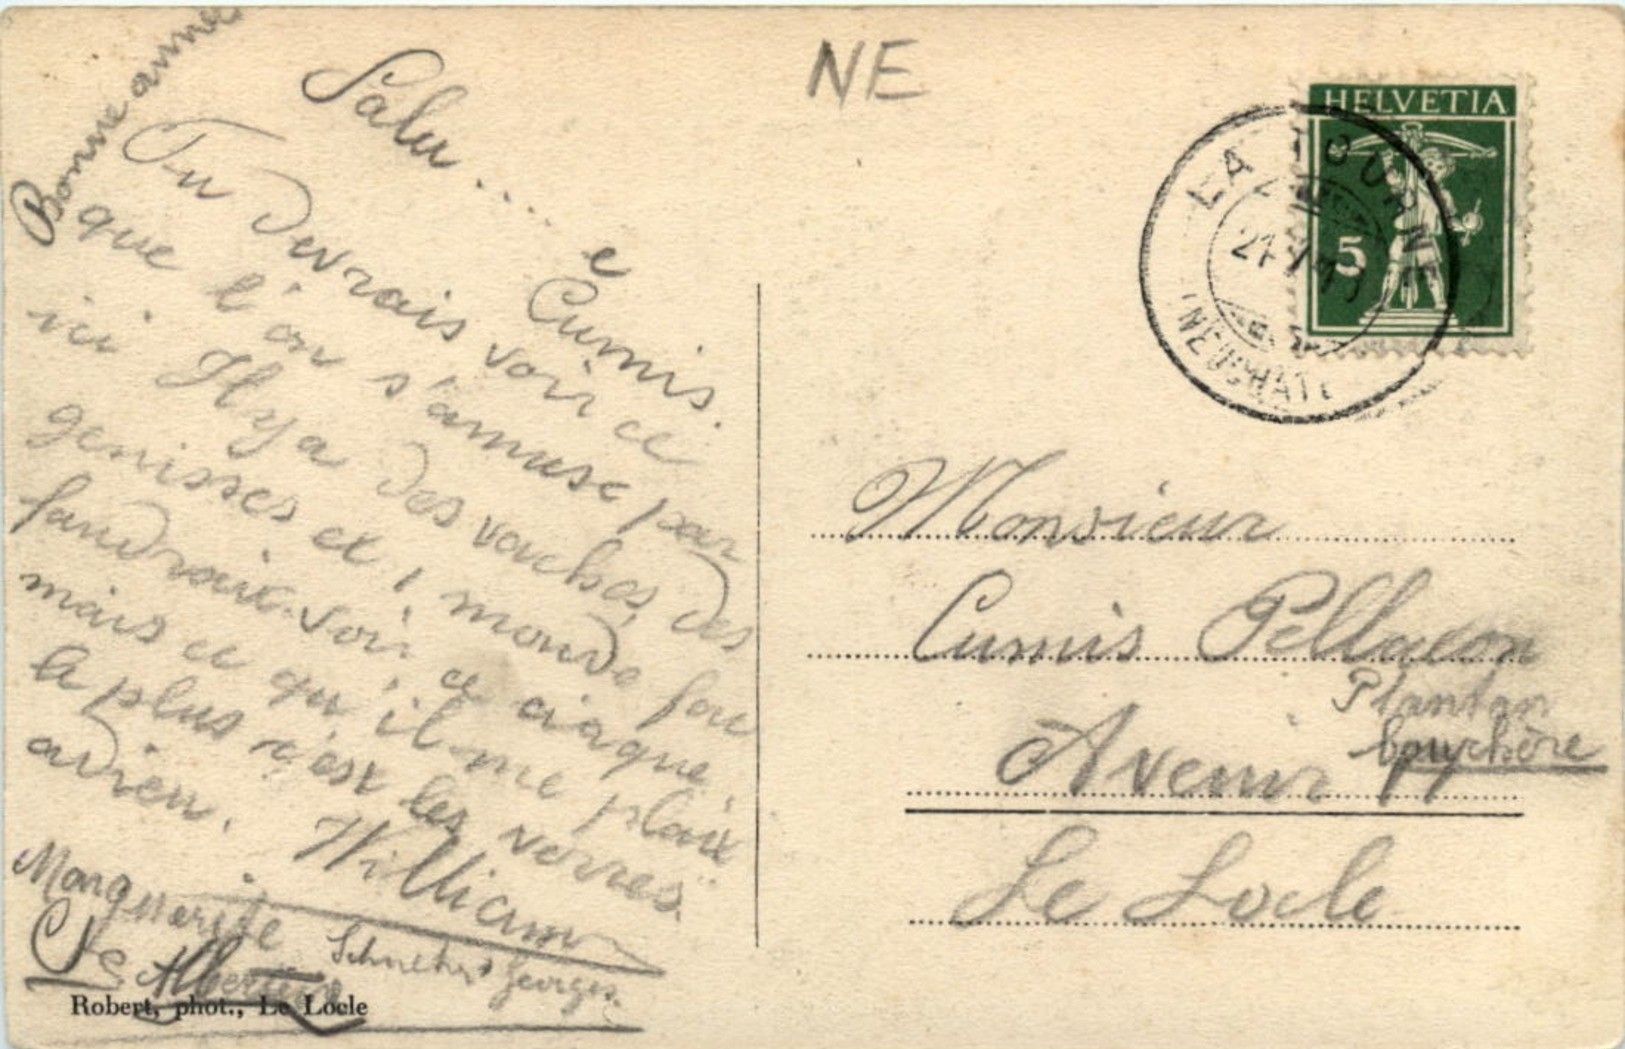 Bonne année
Salu....
e Cumis.
Tu devrais voir ce
que l'on s'amuse par
ici Il y a des vaches, des
genisses et, monde fou
faudrait voir ce
mais ce qu'il me plait
le plus c'est les verres.
adieu. William
Marguerite
Georges.
Robert, phot., Le Locle
NE
HELVETIA
5
LA TOURNE
(NEUCHATEL
Monsieur
Cumis Pellaton
Plantan
bouychère
Avenir
Le Locle